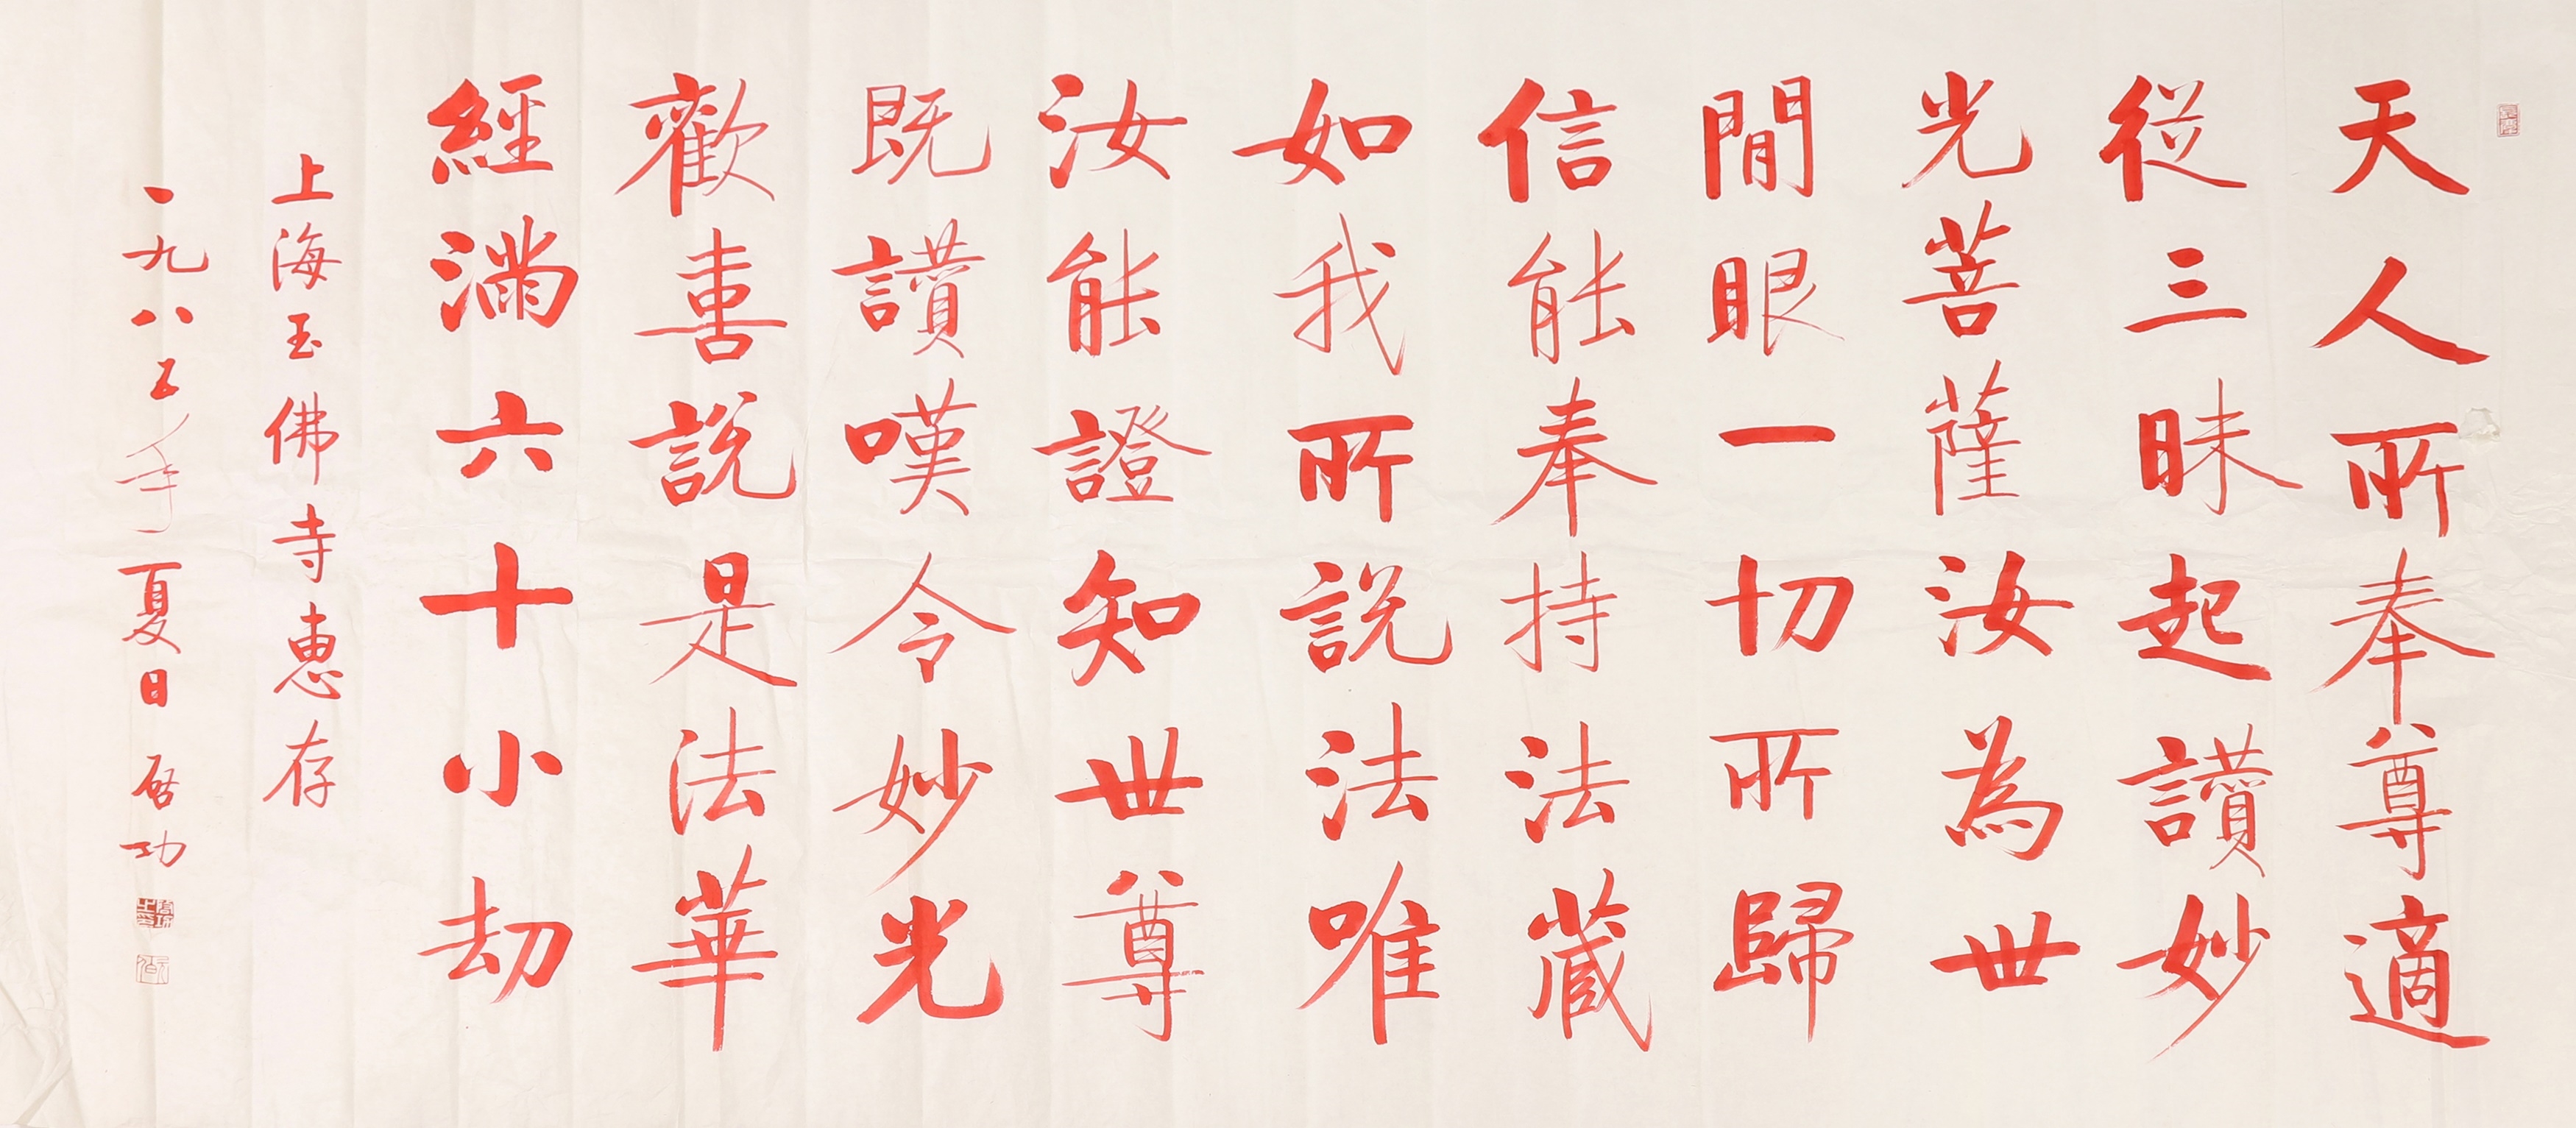 天人所奉尊適
從三昧起讚妙
光菩薩汝為世
間眼一切所歸
信能奉持法藏
如我所說法唯
汝能證知世尊
既讚嘆令妙光
歡喜說是法華
經滿六十小劫
上海玉佛寺惠存
一九八五年夏日啟功